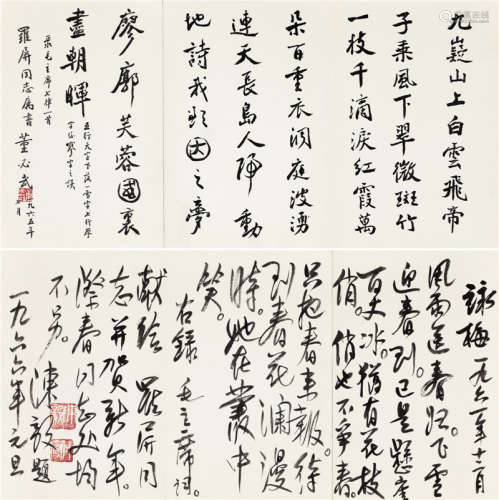 九嶷山上白雲飛帝
子乘風下翠微斑竹
一枝千滴淚紅霞萬
朶百重衣洞庭波湧
連天長島人歌動
地詩我欲因之夢
廖廓芙蓉國裏
盡朝暉
五行天字下落一雪字上行廖
字係寥字之誤
录毛主席七律一首
羅屏同志屬書 董必武
一九六五年
月
詠梅 一九六一年十二月
風雨送春歸。飛雪
迎春到。已是懸崖
百丈冰。猶有花枝
俏。俏也不爭春。
只把春來報。待
到春花瀾漫
時。她在叢中
笑。
右錄 毛主席詞。
献给 羅屏同
志并賀新年。
際春同志处均
不另。陳毅題
一九六六年元旦